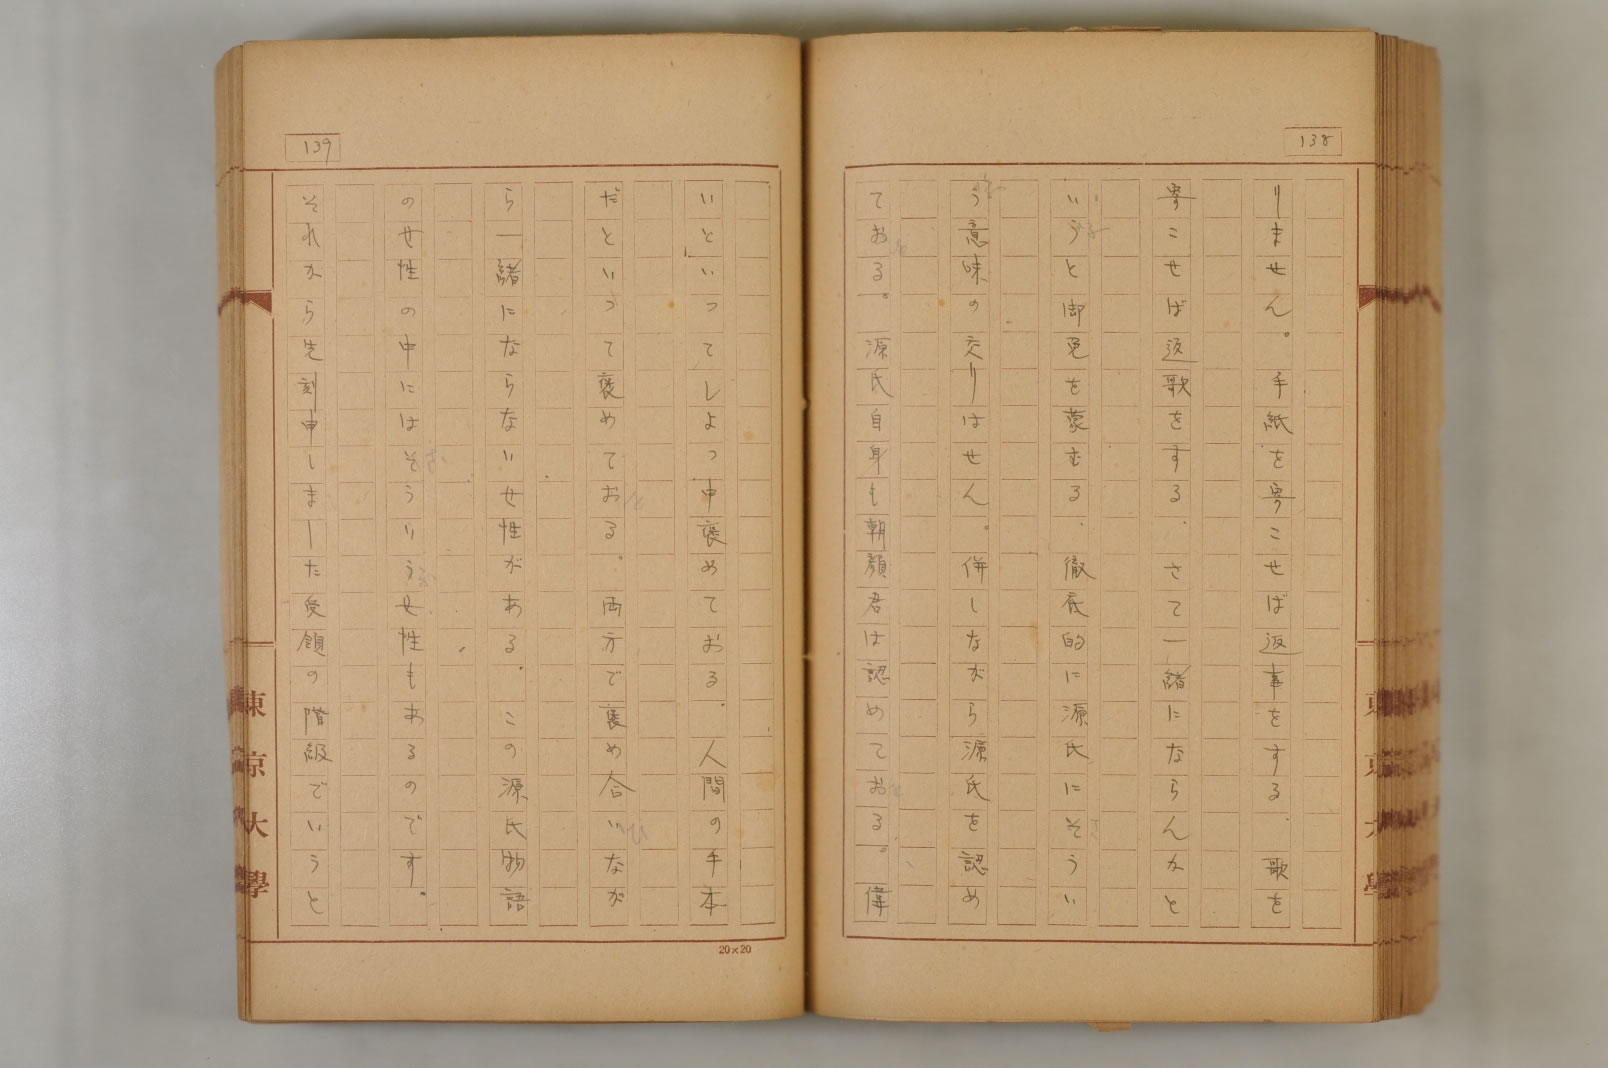 138
りません。手紙を寄こせば返事をする．歌を
寄こせば返歌をする．さて一緒にならんかと
いうと御免を蒙むる．徹底的に源氏にそうい
う意味の交りはせん。併しながら源氏を認め
ておる。源氏自身も朝顔君は認めておる。偉
139
いといってしよつ中褒めておる．人間の手本
だといつて褒めておる。両方で褒め合いなが
ら一緒にならない女性がある．この源氏物語
の女性の中にはそういう女性もあるのです．
それから先刻申しました受領の階級でいうと
20×20
東京大學